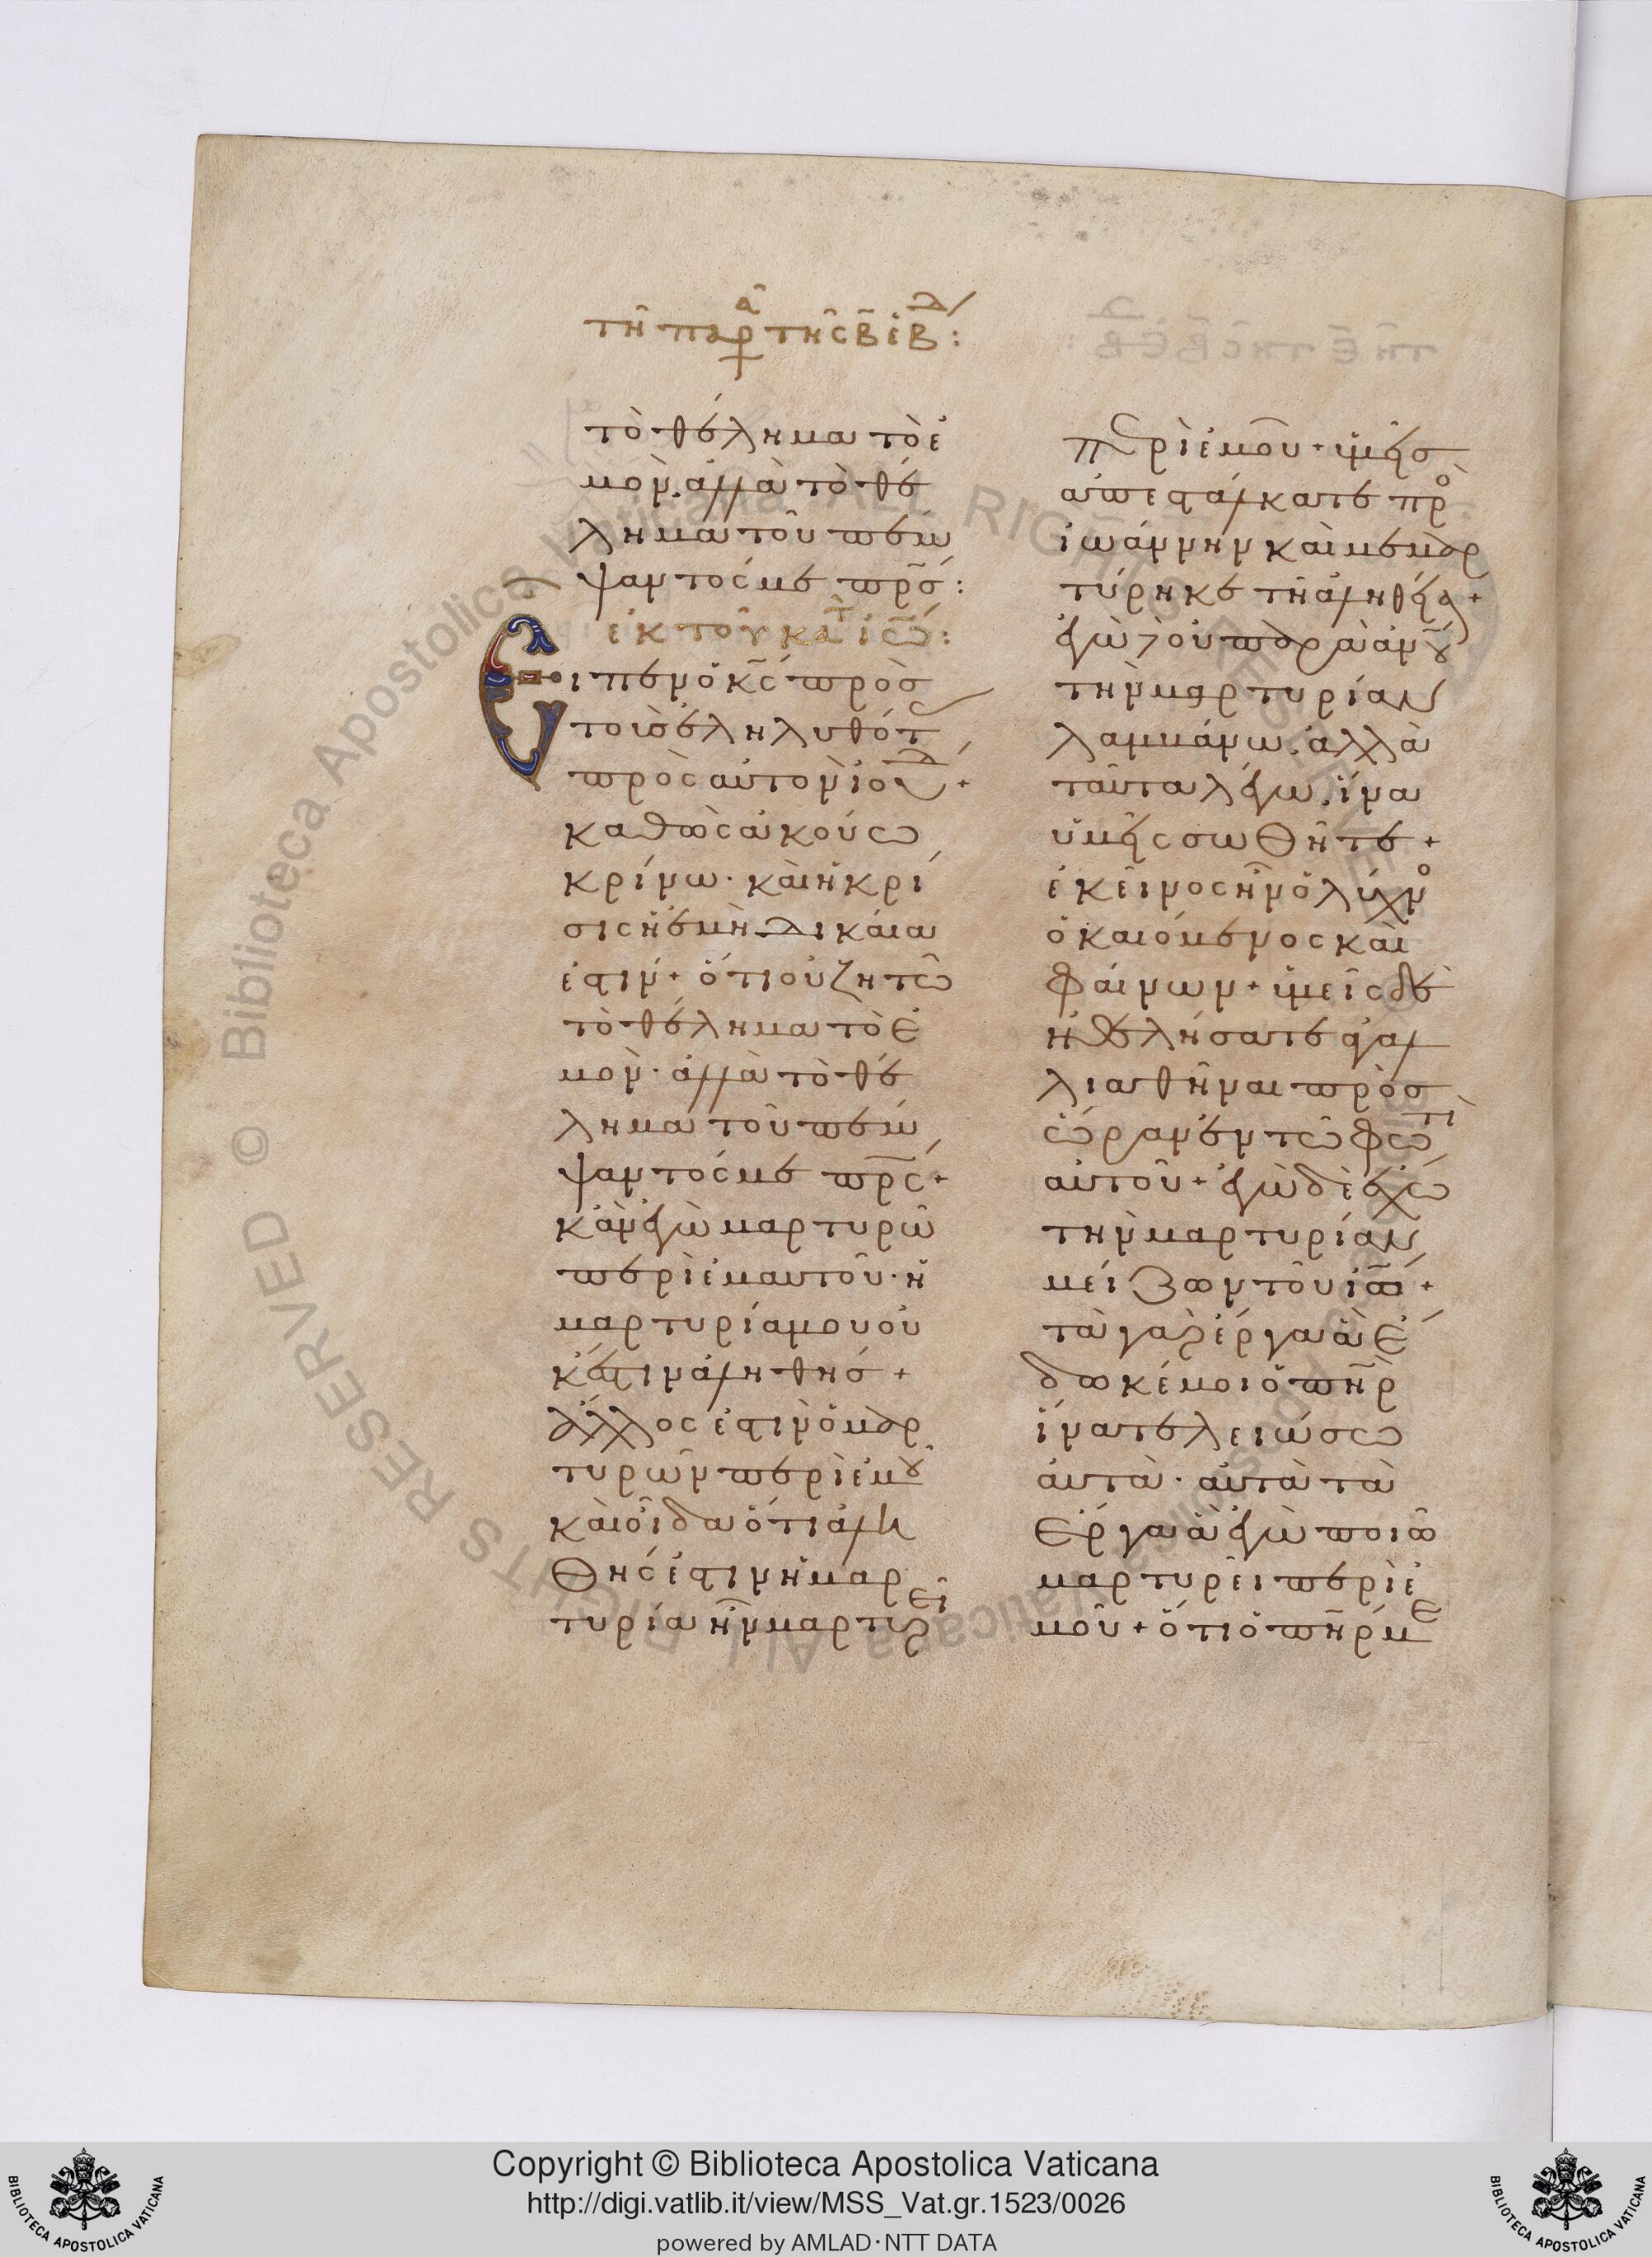 τῆ παρ^α τῆς β ἑβ^δ:
τὸ θέλημα τὸ ἐ
μὸν. ἀλλὰ τὸ θέ
λημα τοῦ πέμ
ψαντός με πρ̅ς:
ἐκ τοῦ κατ ἰω:
Εἶπεν ὁ κ̅ς πρὸς
τοὺς ἐληλυθότ
πρὸς αὐτὸν ἰουδ +
καθὼς ἀκούω
κρίνω · καὶ ἡ κρί
σις ἡ ἐμὴ δικαία
ἐστίν + ὅτι οὐ ζητῶ
τὸ θέλημα τὸ ἐ
μὸν · ἀλλὰ τὸ θέ
λημα τοῦ πέμ
ψαντός με πρ̅ς +
κἂν ἐγὼ μαρτυρῶ
περὶ ἐμαυτοῦ · ἡ
μαρτυρία μου οὐ
κέστιν ἀληθής +
ἄλλος ἐστὶν ὁ μαρ
τυρῶν περὶ ἐμοῦ
καὶ οἶδα ὅτι ἀλη
θής ἐστιν ἡ μαρ
τυρία ἣν μαρτυρεῖ
περὶ ἐμοῦ + ὑμεῖς
ἀπεστάλκατε πρὸ
ἰωάννην καὶ μεμαρ
τύρηκε τῆ ἀληθεία +
ἐγὼ δὲ οὐ παρὰ ἀνου
τὴν μαρτυρίαν
λαμβάνω. ἀλλὰ
ταῦτα λέγω. ἵνα
ὑμεῖς σωθῆτε +
ἐκεῖνος ἦν ὁ λύχνο
ὁ καιόμενος καὶ
φαίνων + ὑμεῖς δὲ
ἠθελήσατε ἀγαλ
λιασθῆναι πρὸς
ὥραν ἐν τῶ φωτὶ
αὐτοῦ + ἐγὼ δὲ ἔχω
τὴν μαρτυρίαν
μείζων τοῦ ἰω +
τὰ γὰρ ἔργα ἃ ἔ
δωκέ μοι ὁ π̅ηρ
ἵνα τελειώσω
αὐτὰ · αὐτὰ τὰ
ἔργα ἃ ἐγὼ ποιῶ
μαρτυρεῖ περὶ ἐ
μοῦ + ὅτι ὁ π̅ηρ με
Copyright © Biblioteca Apostolica Vaticana
http://digi.vatlib.it/view/MSS_Vat.gr.1523/0026
powered by AMLAD·NTT DATA
BIBLIOTECA APOSTOLICA VATICANA
BIBLIOTECA APOSTOLICA VATICANA
© Biblioteca Apostolica Vaticana ALL RIGHTS RESERVED